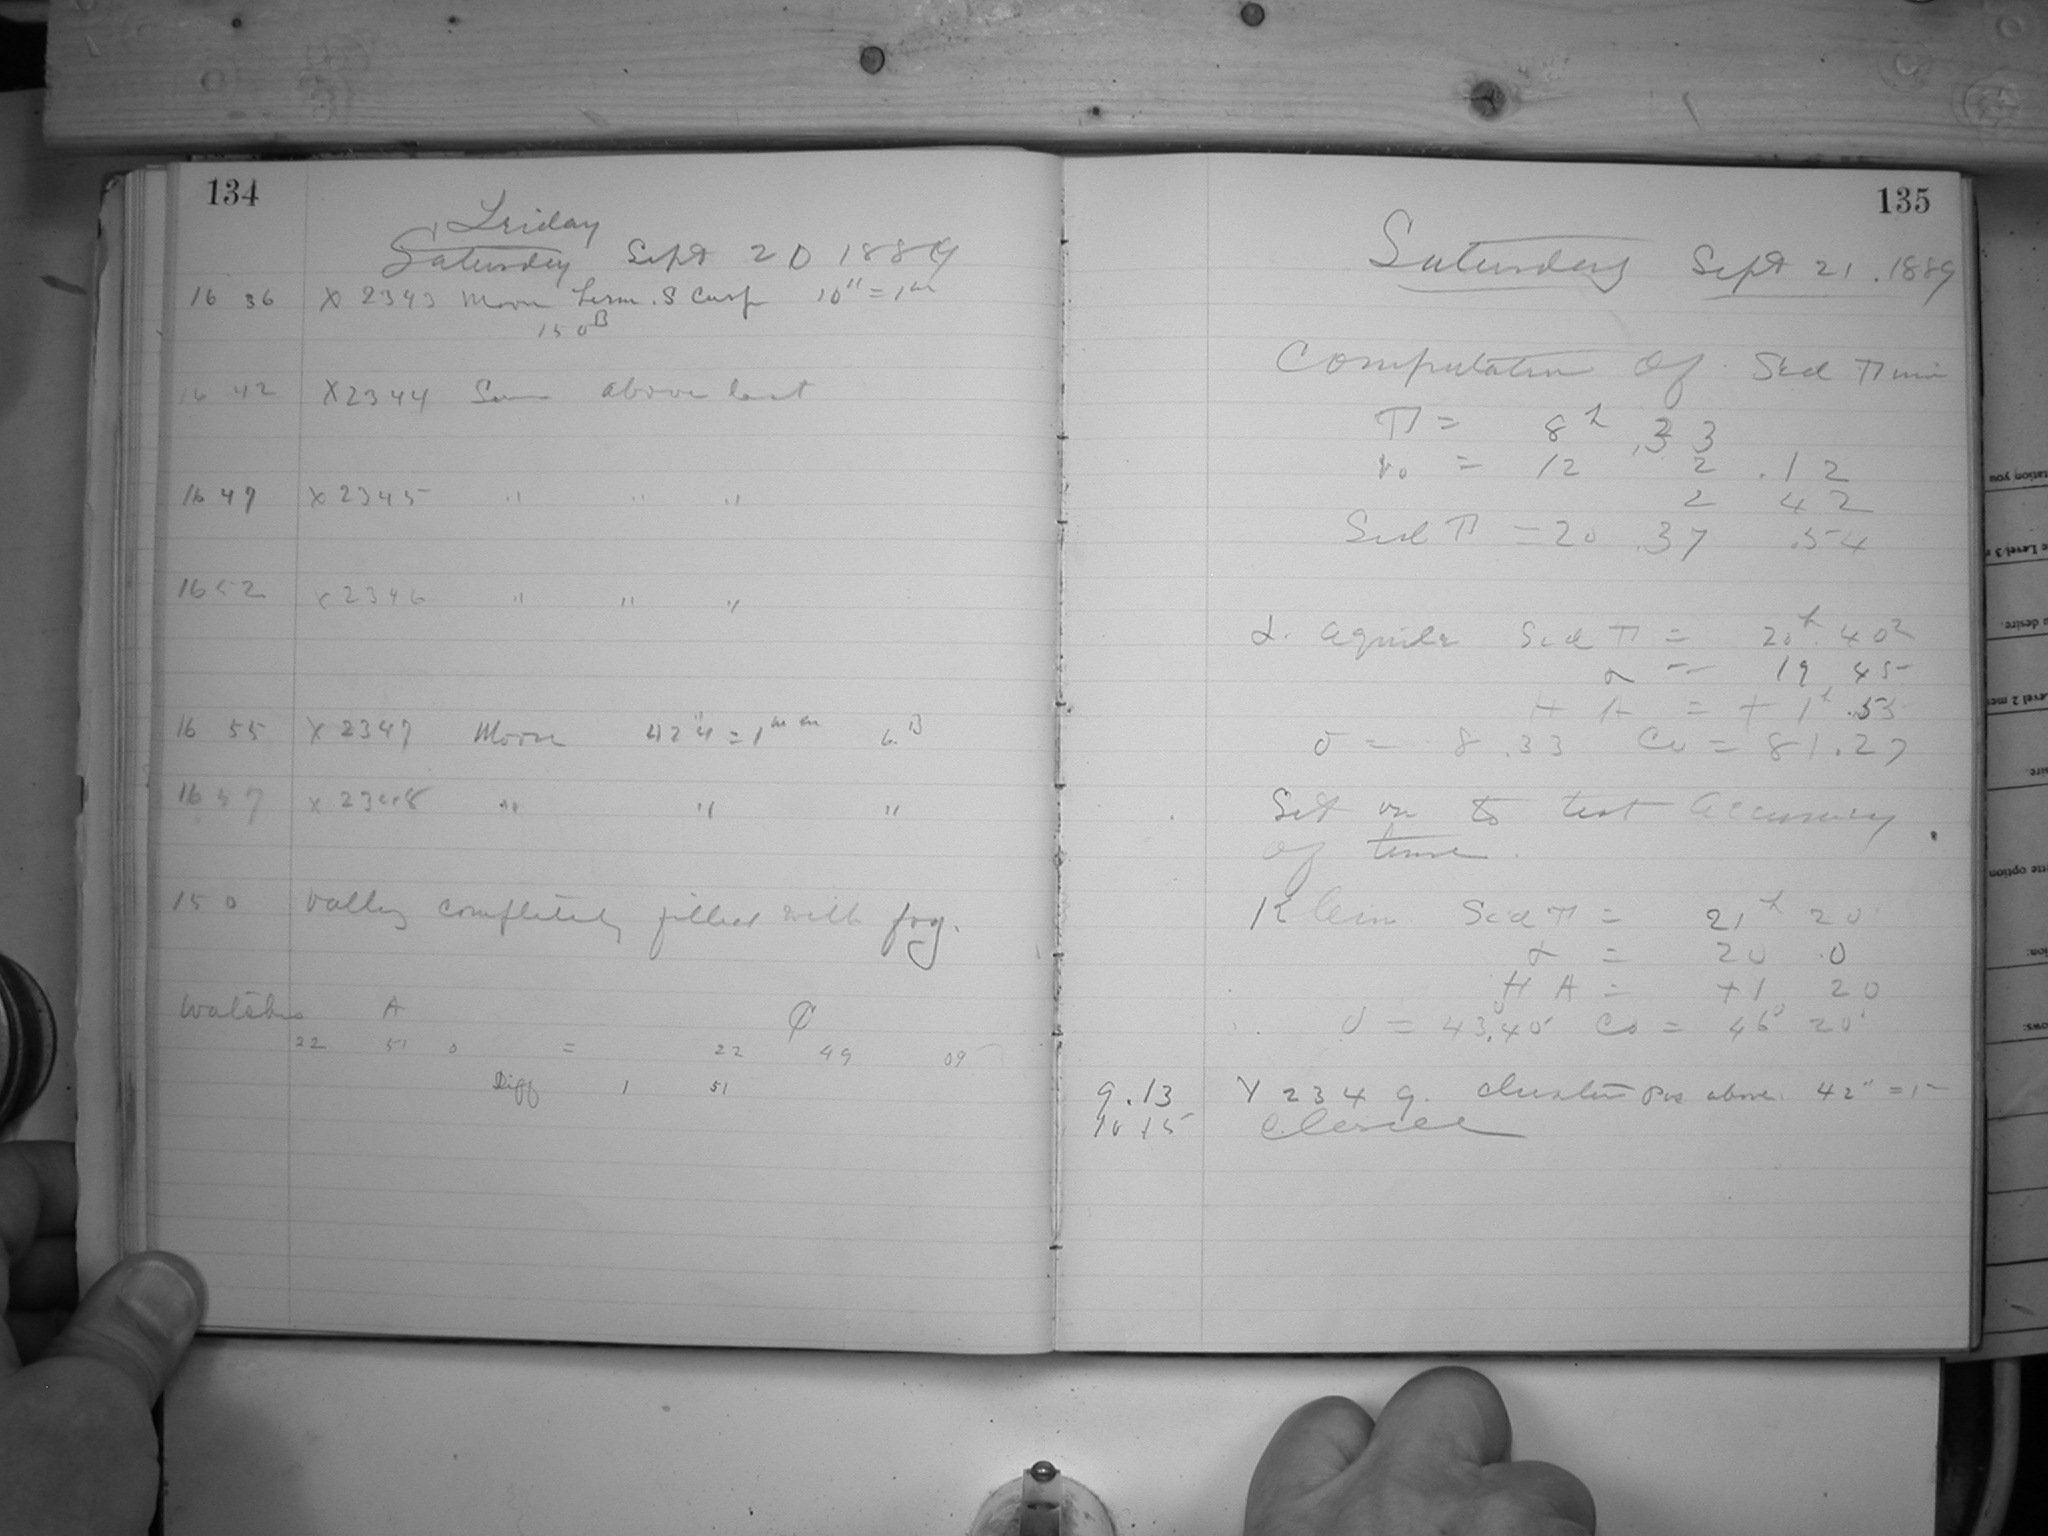 134
Friday
Saturday Sept 20 1889
16 36 X 2343 Moon Term. S Cusp 10" = 1m
150B
16 42 X2344 Same above last
16 47 X 2345 " " "
16 52 X 2346 " " "
16 55 X 2347 Moon 42"4 = 1mm 6.B
16 57 X 2348 " " "
15 0 Valley completely filled with fog.
Watches A ₵
22 51 0 = 22 49 09
Diff 1 51
135
Saturday Sept 21. 1889
Computation of Sid Time
T = 8h 33
= 12 2 .12
2 42
Sid T = 20 .37 .54
α. Aquilae Sid T = 20h 40
α = 19 45
H A = + 1h .55
δ = 8.33 Co = 81.27
Set on to test accuracy
of time.
Sid T = 21h 20
α = 20 .0
H A = +1 20
δ = 43.40 Co = 46° 20'
9.13 X 2349. cluster Pos above. 42" = 1
10 15 Closed